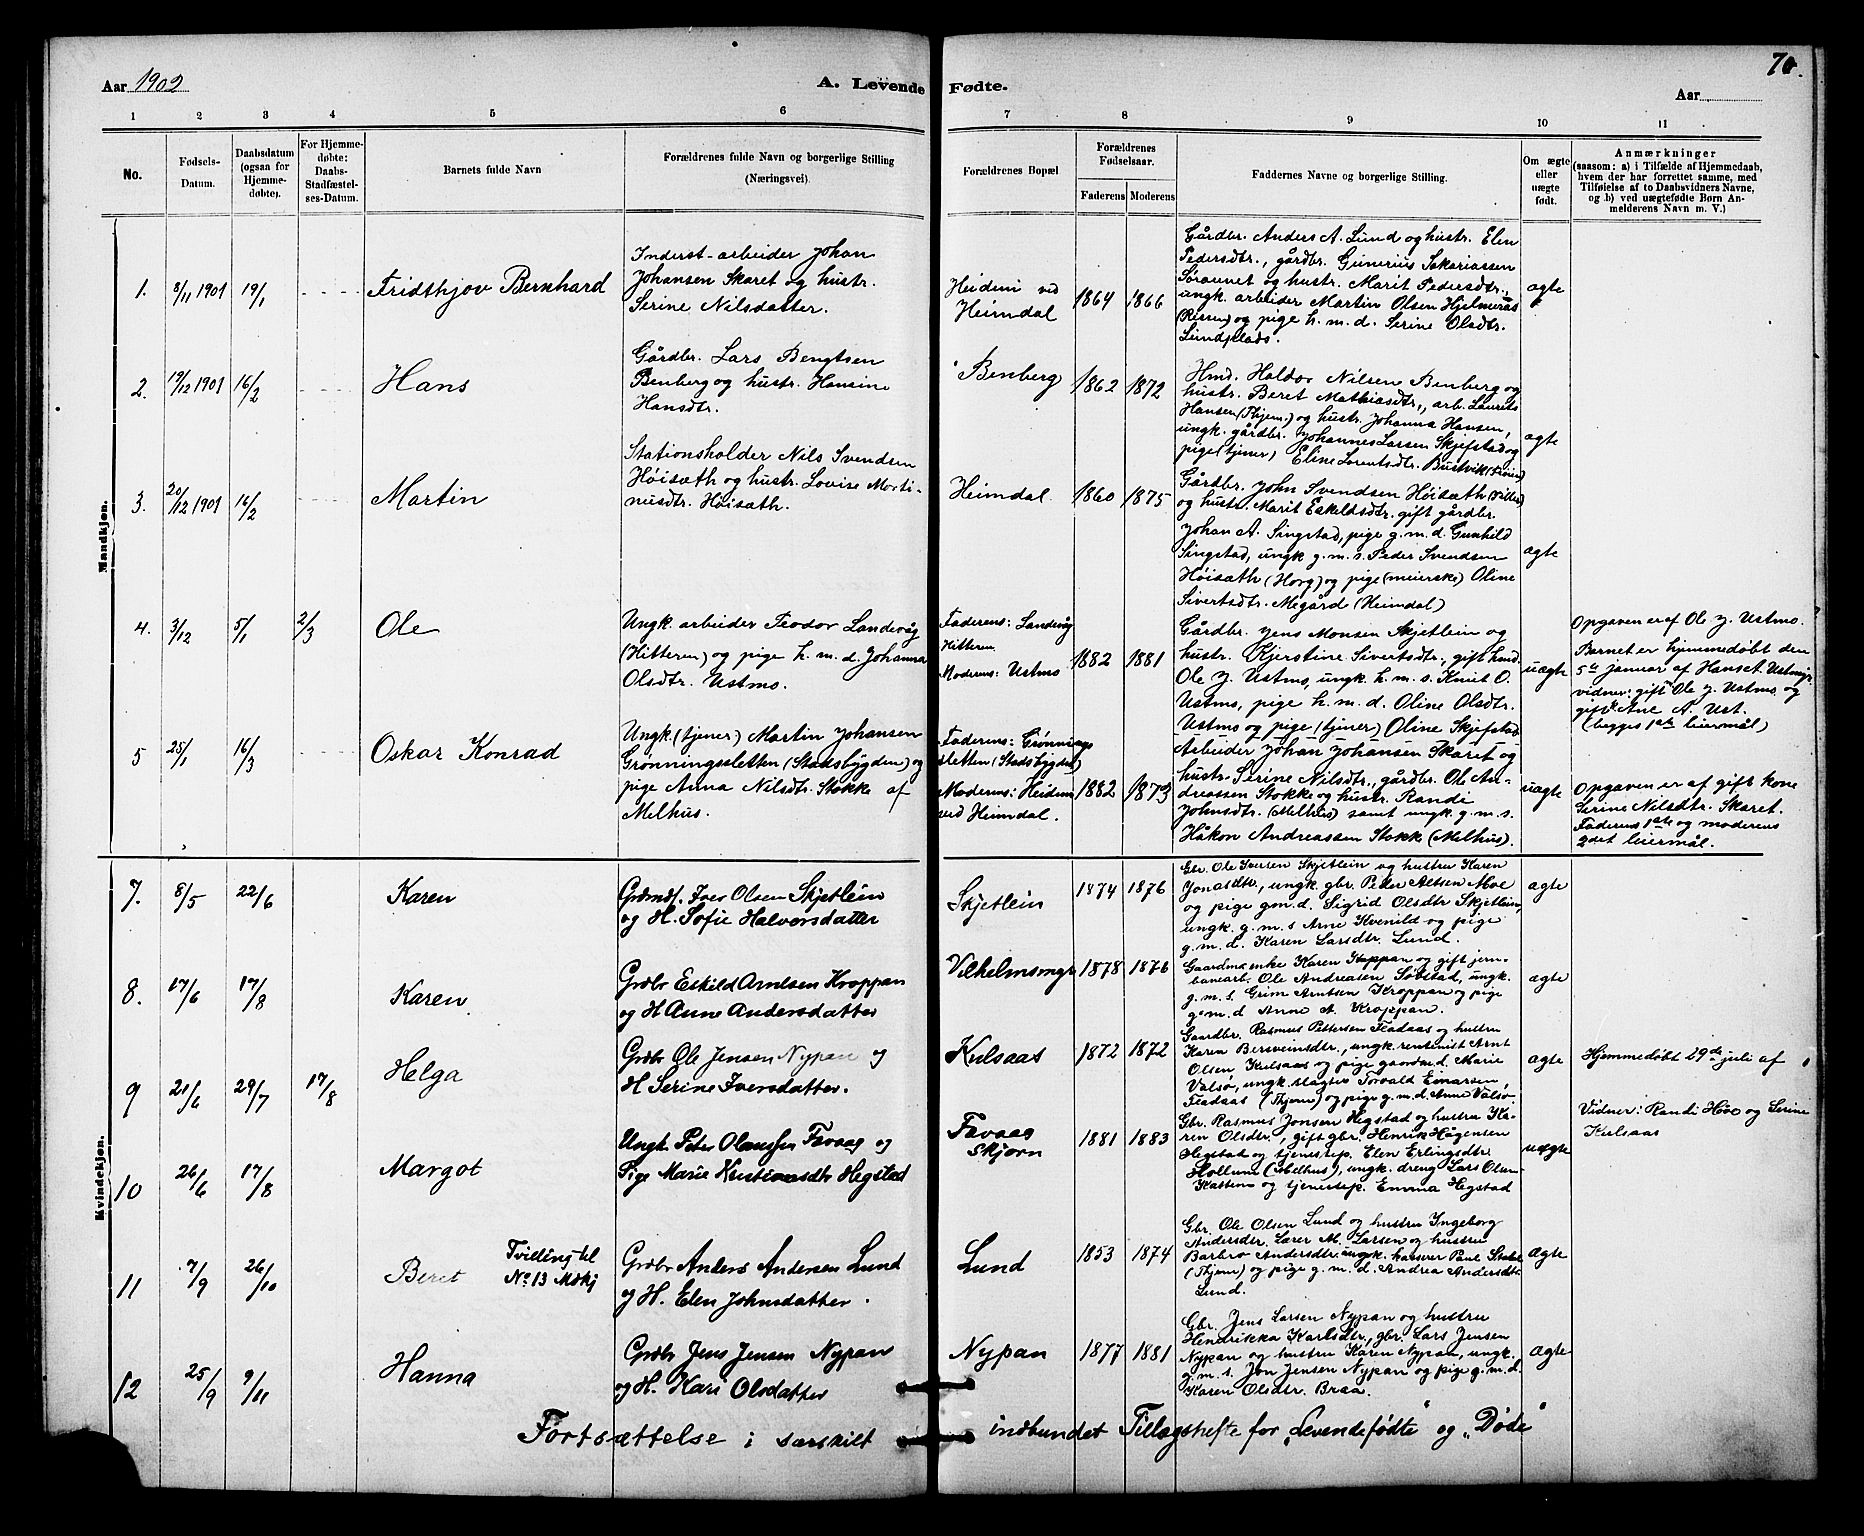 Aar 1902
A. Levende Fødte.
Aar
70.
1 2 3 4 5 6 7 8 9 10 11
No.
Fødsels-
Datum.
Daabsdatum
(ogsaa for
Hjemme-
døbte).
For Hjemme-
døbte;
Daabs-
Stadfæstel-
ses-Datum.
Barnets fulde Navn
Forældrenes fulde Navn og borgerlige Stilling
(Næringsvei).
Forældrenes Bopæl
Forældrenes
Fødselsaar.
Faderens Moderens
Faddernes Navne og borgerlige Stilling.
Om ægte
eller
uægte
født.
Anmærkninger
(saasom: a) i Tilfælde af Hjemmedaab,
hvem der har forrettet samme, med
Tilføielse af to Daabsvidners Navne,
og b) ved uægtefødte Børn An-
melderens Navn m. V.)
Mandkjøn.
1. 8/11 1901 19/1
Fridthjov Bernhard
Inderst-arbeider Johan
Johansen Skaret og hustr.
Serine Nilsdatter.
Heidmi ved
Heimdal
1864 1866
Gårdbr. Anders A. Lund og hustr. Elen
Pedersdtr., gårdbr. Gunerius Sakariassen
Søraunet og hustr. Marit Pedersdtr.,
ungk. arbeider Martin Olsen Hjelmerås
(Rissen) og pige h. m. d. Serine Olsdtr.
Lundplads.
ægte
2. 19/12 1901 16/2
Hans
Gårdbr. Lars Bengtsen
Benberg og hustr. Hansine
Hansdtr.
Benberg
1862 1872
Hmd. Haldor Nilsen Benberg og
hustr. Beret Mathiasdtr., arb. Laurits
Hansen (Thjem.) og hustr. Johanna Hansen,
ungk. gårdbr. Johannes Larsen Skjefstad og
pige (tjener) Eline Lorentsdtr.
ægte
3. 20/12 1901 16/2
Martin
Stationsholder Nils Svendsen
Høisæth og hustr. Lovise Morti-
nusdtr. Høisæth.
Heimdal.
1860 1875
Gårdbr. John Svendsen Høisæth
og hustr. Marit Eskeldsdtr. gift gårdbr.
Johan A. Singstad, pige g. m. d. Gunhild
Singstad, ungk g. m. s. Peder Svendsen
Høisæth (Horg) og pige (meierske) Oline
Sivertsdtr. Megård (Heimdal)
ægte
4. 3/12 5/1 2/3
Ole
Ungk. arbeider Teodor Landevåg
(Hitteren) og pige h. m. d. Johanna
Olsdtr. Ustmo.
Faderens: Landevåg
Hitteren.
Moderens: Ustmo
1882 1881
Gårdbr. Jens Monsen Skjetlein og
hustr. Kjerstine Sivertsdtr., gift hmd.
Ole J. Ustmo, ungk. h. m. s. Knut O.
Ustmo, pige h. m. d. Oline Olsdtr.
Ustmo og pige (tjener) Oline Skjefstad
uægte
Opgaven er af Ole J. Ustmo.
Barnet er hjemmedøbt den
5te januar af Hanset. Ustmyr.
vidner: gift Ole J. Ustmo og
gift Ane A. Ust.
(begges 1ste leiermål)
5 25/1 16/3
Oskar Konrad
Ungk. (tjener) Martin Johansen
Grønningssletten (Stadsbygden) og
pige Anna Nilsdtr. Stokke af
Melhus.
Faderens: Grønnings
sletten (Stadsbygden)
Moderens: Heidmi
ved Heimdal.
1882 1873
Arbeider Johan Johansen Skaret og
hustr. Serine Nilsdtr., gårdbr. Ole An-
dreassen Stokke og hustr. Randi
Johnsdtr. (Melhus) samt ungk. g. m. s.
Håkon Andreassen Stokk (Melhus).
uægte
Opgaven er af gift kone
Serine Nilsdtr. Skaret.
Faderens 1ste og moderens
2det leiermål.
Kvindekjøn.
7. 8/5 22/6
Karen
Grdmdf. Iver Olsen Skjetlein
og H. Sofie Halvorsdatter
Skjetlein
1874 1876
Gbr. Ole Iversen Skjetlein og hustru Karen
Jonasdtr., ungk. gbr. Peter Altsen Moe
og pige gm. d. Sigrid Olsdtr Skjetlein,
ungk. g. m. s Arne Kvenild og pige
g. m. d. Karen Larsdtr. Lund.
ægte
8. 17/6 17/8
Karen.
Grdbr Eskild Arntsen Kroppan
og H Anne Andersdatter
Vilhelmsmyr
1878 1876
Gaardmænke Karen Kroppan og gift jern-
banearb. Ole Andreasen Solstad, ungk.
g. m. s. Grim Arntsen Kroppan og pige
g. m. d Anne A. Kroppan.
ægte
9 21/6 29/7 17/8
Helga
Grdbr Ole Jensen Nypan og
H Serine Iversdatter.
Kulsaas
1872 1872
Gaardbr. Rasmus Pettersen Fladaas og hustru
Karen Bersveinsdtr., ungk. rentenist Arnt
Olsen Kulsaas og pige gaardmd. Marie
Valsø, ungk. slagter Torvald Einarsen,
Fladaas (Thjem) og pige g. m. d. Anne Valsø.
ægte
Hjemmedøbt 29de juli af
Vidner: Randi Hoe og Serine
Kulsaas
10 26/6 17/8
Margot
Ungk. Peter Olaussen Favaag og
Pige Marie Kristiansdtr Hegstad
Favaag
Skjørn
1881 1883
Gbr. Rasmus Jonsen Hegstad og hustru Ka-
ren Olsdtr., gift gbr. Henrik Hågensen
Hegstad og tjenestep. Elen Erlingsdtr
Hollum (Melhus), ungk. dreng Lars Olsen
Kattem og tjenestep. Emma Hegstad
uægte
11 7/9 26/10
Beret
Tvilling til
No. 13 Mdkj
Grdbr Anders Andersen Lund
og H. Elen Johnsdatter.
Lund
1853 1874
Gbr. Ole Olsen Lund og hustru Ingeborg
Andersdtr. Lærer M. Larsen og hustru
Barbro Andersdtr. ungk. kasserer Paul
(Thjem) og pige g. m. d. Andrea Andersdtr.
Lund.
ægte
12 25/9 9/11
Hanna
Grdbr Jens Jensen Nypan
og H. Kari Olsdatter
Nypan
1877 1881
Gbr. Jens Larsen Nypan og hustru
Hendrikka Karlsdtr., gbr. Lars Jensen
Nypan og hustru Karen Nypan, ungk.
g. m. s. Jon Jensen Nypan og pige g. m. d.
Karen Olsdtr. Braa.
ægte
Fortsættelse i særskilt indbundet Tillægshefte for „Levendefødte" og „Døde"